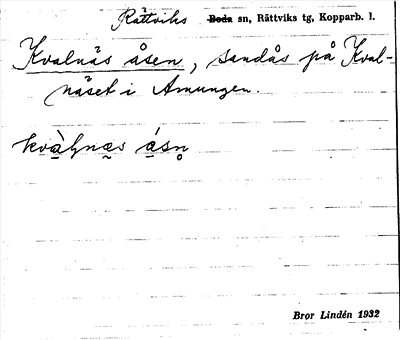 Rättviks Boda sn, Rättviks tg, Kopparb. l.
Kvalnäs åsen, sandås på Kval-
näset i Amungen.
kvàḷnæs ásn̥
Bror Lindén 1932